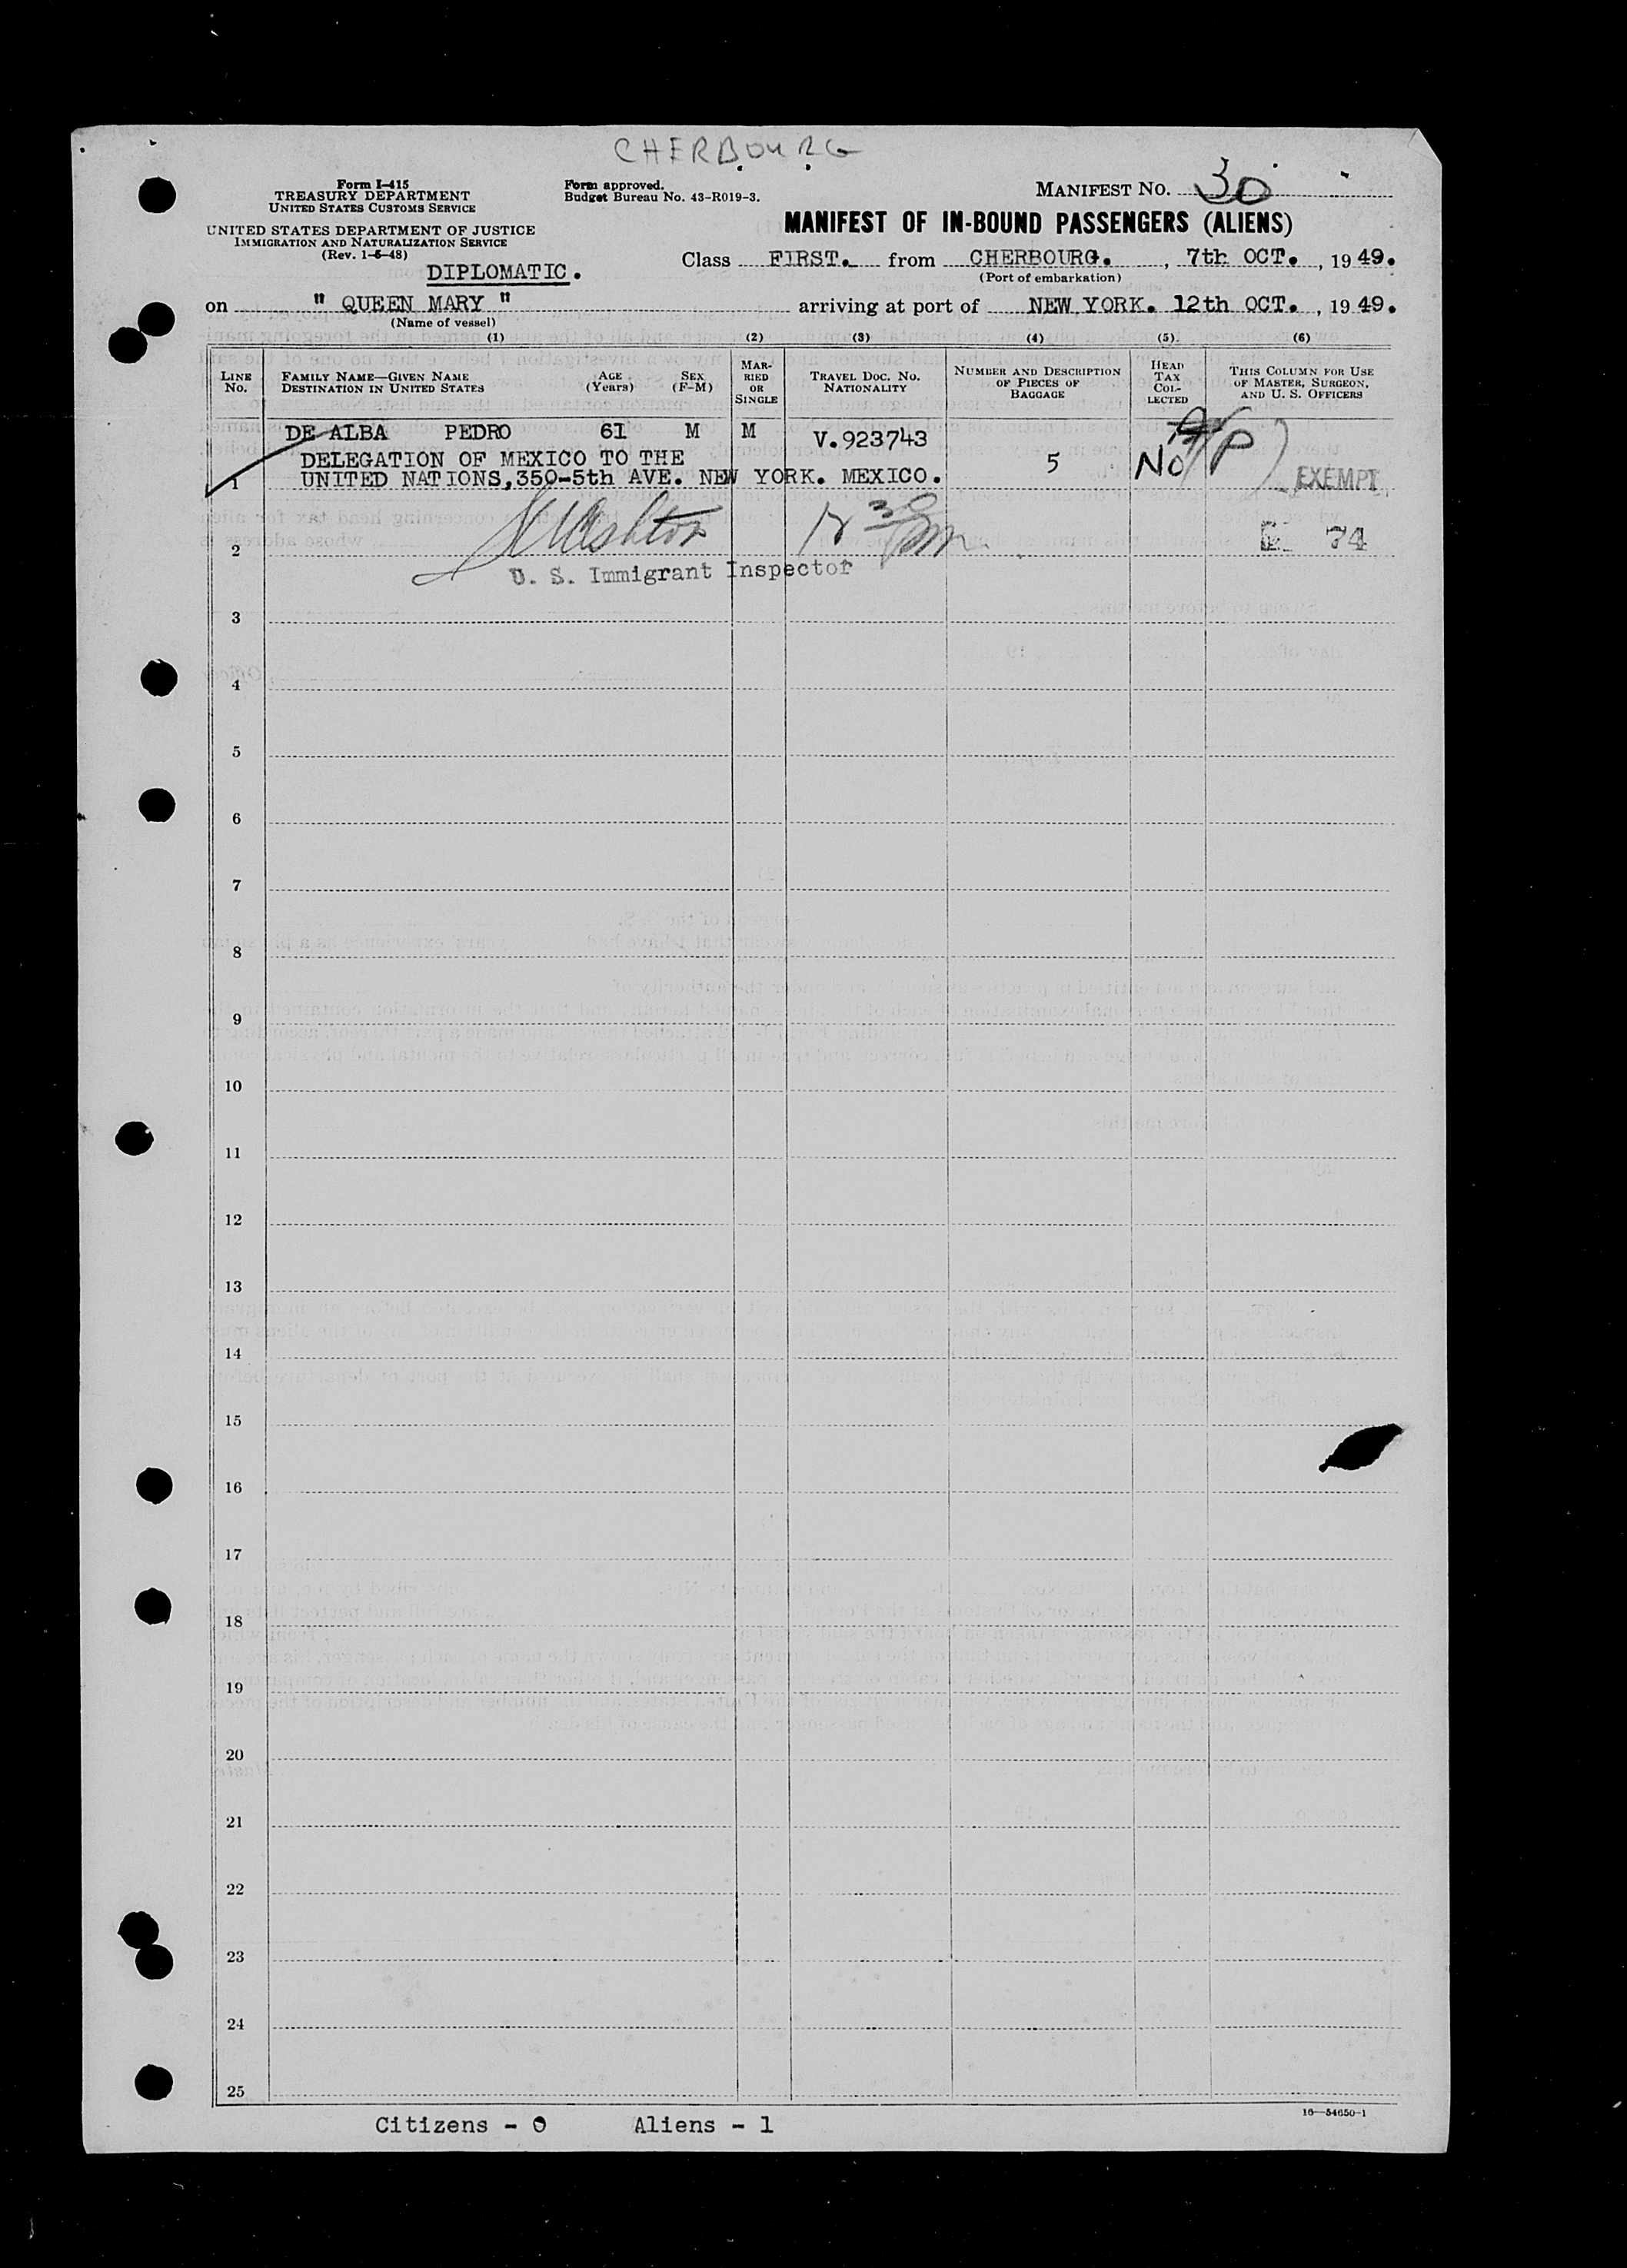 CHERBOURG
Form I-415
TREASURY DEPARTMENT
UNITED STATES CUSTOMS SERVICE
UNITED STATES DEPARTMENT OF JUSTICE
IMMIGRATION AND NATURALIZATION SERVICE
(Rev. 1-6-48)
Form approved.
Budget Bureau No. 43-R019-3.
MANIFEST NO. 30
MANIFEST OF IN-BOUND PASSENGERS (ALIENS)
DIPLOMATIC.
Class FIRST. from CHERBOURG. , 7th OCT. , 1949.
(Port of embarkation)
on " QUEEN MARY " arriving at port of NEW YORK. 12th OCT. , 1949.
(Name of vessel)
(1) (2) (3) (4) (5) (6)
LINE No. FAMILY NAME—GIVEN NAME DESTINATION IN UNITED STATES AGE (Years) SEX (F-M) MARRIED OR SINGLE TRAVEL DOC. NO. NATIONALITY NUMBER AND DESCRIPTION OF PIECES OF BAGGAGE HEAD TAX COLLECTED THIS COLUMN FOR USE OF MASTER, SURGEON, AND U. S. OFFICERS
DE ALBA PEDRO 61 M M V.923743
DELEGATION OF MEXICO TO THE 5 No P
1 UNITED NATIONS,350-5th AVE. NEW YORK. MEXICO. EXEMPT
2 74
U. S. Immigrant Inspector
3
4
5
6
7
8
9
10
11
12
13
14
15
16
17
18
19
20
21
22
23
24
25
16—54650-1
Citizens - 0 Aliens - 1